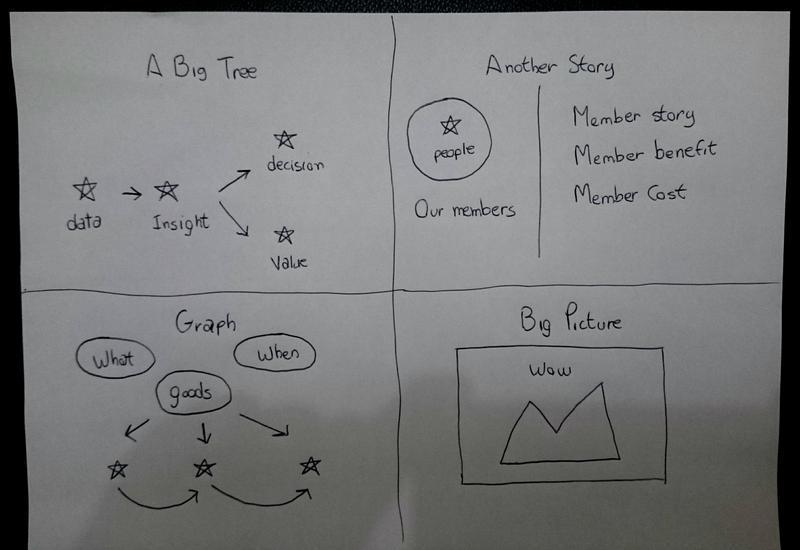 A Big Tree
decision
data
Insight
Value
Another Story
people
Our members
Member story
Member benefit
Member Cost
Graph
What
When
goods
Big Picture
Wow